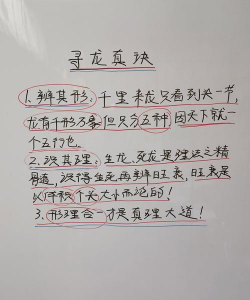 寻龙真诀
1.辨其形:千里来龙只看到头一节,
龙有千形万象但只分五种,因天下就一
个五行也
2.识其理:生龙、死龙是理法之精
骨道,识得生死再辨旺衰,旺衰是
以体积个头大小而论的!
3.形理合一才是真理大道!